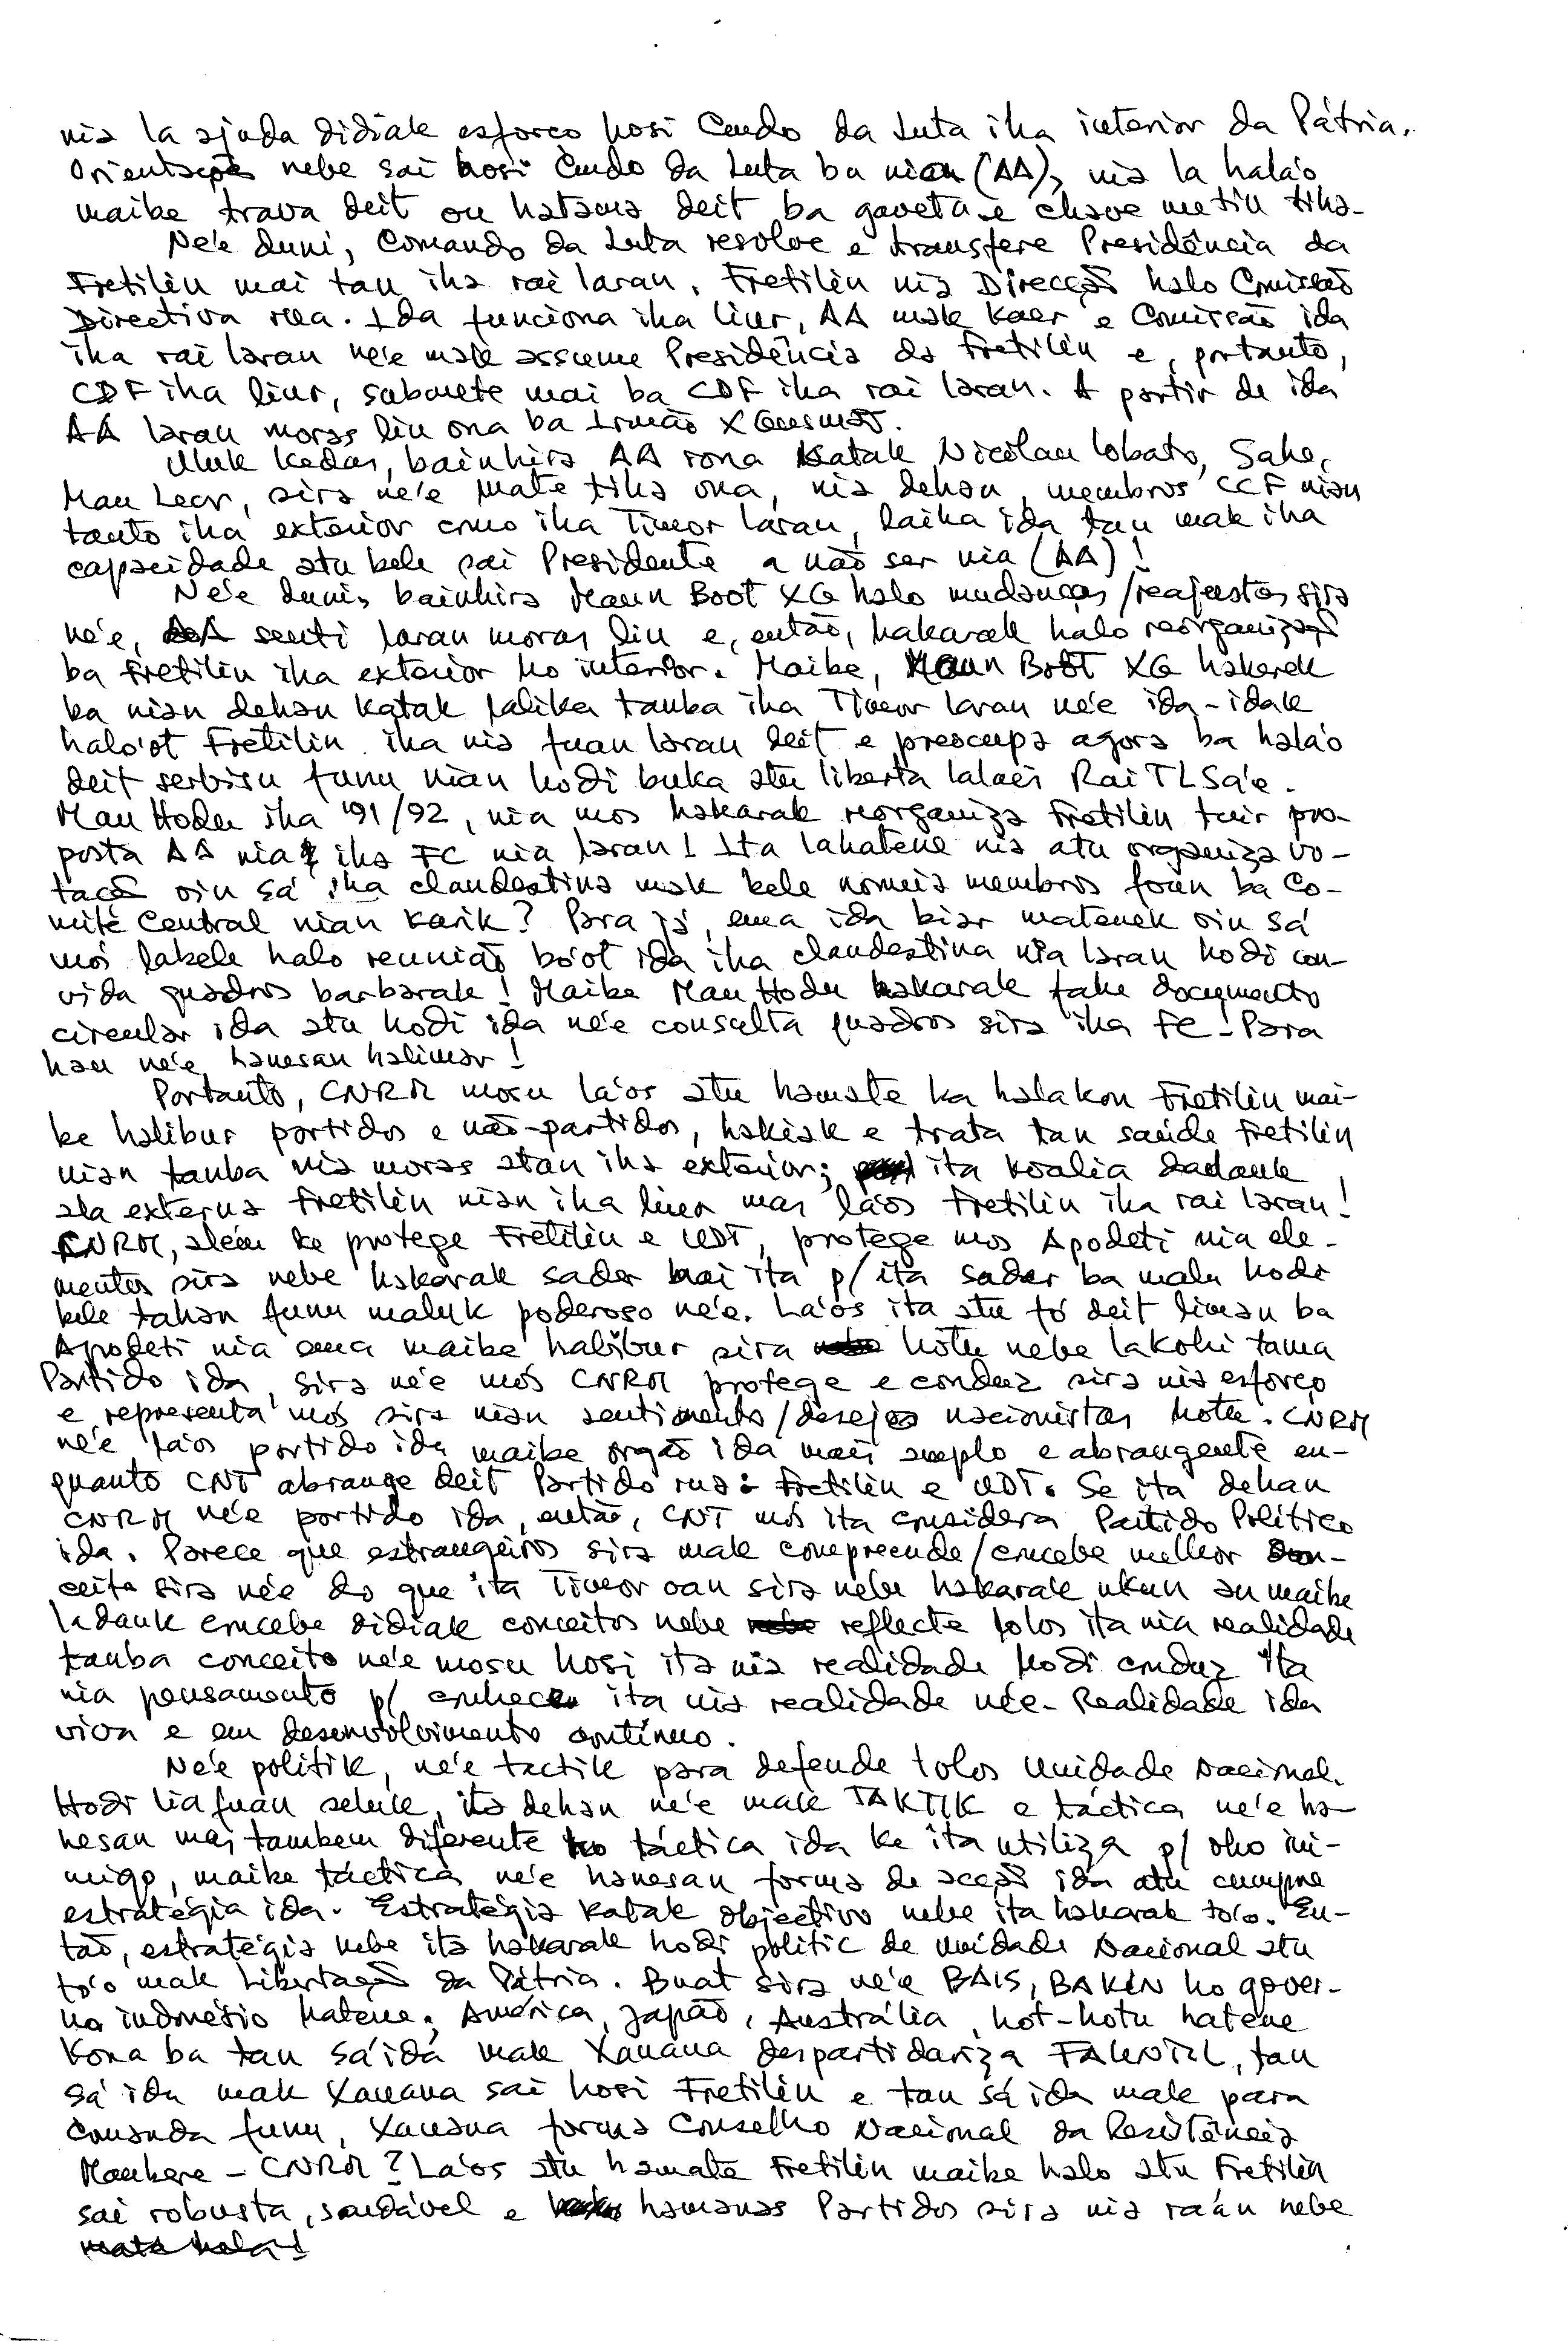 nia la ajuda didiak esforço hosi Cmdo da Luta iha interior da Pátria.
Orientações nebe sai hosi Cmdo da Luta ba nian (AA), nia la halá'o
maibe trava deit ou hatama deit ba gaveta e chave metin tiha.
Ne'e duni, Comando da Luta resolve e transfere Presidência da
Fretilin mai tau iha rai laran. Fretilin nia Direcção halo Comissão
Directiva rua. Ida funciona iha liur, AA mak kaer e Comissão ida
iha rai laran ne'e mak assume Presidência da Fretilin e, portanto,
CDF iha liur, submete mai ba CDF iha rai laran. A partir de ida
AA laran moras liu ona ba Irmão XGusmão.
Uluk kedas, bainhira AA rona katak Nicolau Lobato, Sahe,
Mau Lear, sira ne'e mate tiha ona, nia dehan, membros CCF nian
tanto iha exterior como iha Timor laran, laiha ida tan mak iha
capacidade atu bele sai Presidente a não ser nia (AA)!
Ne'e duni, bainhira Maun Boot XG halo mudanças/reajustos sira
ne'e, AA senti laran moras liu e, então, hakarak halo reorganização
ba Fretilin iha exterior ho interior. Maibe, Maun Boot XG hakerek
ba nian dehan katak lalika tanba iha Timor laran ne'e ida-idak
halo'ot Fretilin iha nia fuan laran deit e preocupa agora ba halá'o
deit serbisu funu nian hodi buka atu liberta lalais Rai TLSa'e.
Mau Hodu iha '91/92, nia mos hakarak reorganiza Fretilin tuir pro-
posta AA nia iha FC nia laran! Ita lahatene nia atu organiza vo-
tação oin sá iha clandestina mak bele nomeia membros foun ba Co-
mité Central nian karik? Para já, ema ida biar matenek oin sá
mós labele halo reunião bo'ot ida iha clandestina nia laran hodi con-
vida quadros barbarak! Maibe Mau Hodu hakarak fahe documento
circular ida atu hodi ida ne'e consulta quadros sira iha FC! Para
hau ne'e hanesan halimar!
Portanto, CNRM mosu lá'os atu hamate ka halakon Fretilin mai-
be halibur partidos e não-partidos, hakiak e trata tan saúde Fretilin
nian tanba nia moras atan iha exterior; ita koalia dadauk
ala externa Fretilin nian iha liur mas lá'os Fretilin iha rai laran!
CNRM, além ke protege Fretilin e UDT, protege mos Apodeti nia ele-
mentos sira nebe hakarak sadar mai ita p/ ita sadar ba malu hodi
bele tahan funu maluk poderoso ne'e. Lá'os ita atu fó deit liman ba
Apodeti nia ema maibe halibur sira hotu nebe lakohi tama
Partido ida, sira ne'e mós CNRM protege e conduz sira nia esforço
e representa mós sira nian sentimento/desejos nacionistas hotu. CNRM
ne'e lá'os partido ida maibe orgão ida mais amplo e abrangente en-
quanto CNT abrange deit Partido rua: Fretilin e UDT. Se ita dehan
CNRM ne'e partido ida, então, CNT mós ita considera Partido Político
ida. Parece que estrangeiros sira mak compreende/concebe melhor con-
ceito sira ne'e do que ita Timor oan sira nebe hakarak ukun an maibe
ladauk concebe didiak conceitos nebe reflecte lolos ita nia realidade
tanba conceito ne'e mosu hosi ita nia realidade hodi conduz ita
nia pensamento p/ conhecer ita nia realidade ne'e. Realidade ida
viva e em desenvolvimento contínuo.
Ne'e politik, ne'e tactik para defende lolos Unidade Nacional.
Hodi liafuan seluk, ita dehan ne'e mak TAKTIK e táctica ne'e ha-
nesan mas tambem diferente ho táctica ida ke ita utiliza p/ oho ini-
migo, maibe táctica ne'e hanesan forma de acção ida atu cumpre
estratégia ida. Estratégia katak objectivo nebe ita hakarak to'o. En-
tão, estratégia nebe ita hakarak hodi politic de Unidade Nacional atu
to'o mak Libertação da Pátria. Buat sira ne'e BAIS, BAKIN ho gover-
no indonésio hatene. América, Japão, Austrália, hot-hotu hatene
kona ba tan sá ida mak Xanana despartidariza FALINTIL, tan
sá ida mak Xanana sai hosi Fretilin e tan sá ida mak para
comanda funu, Xanana forma Conselho Nacional da Resistência
Maubere - CNRM? Lá'os atu hamate Fretilin maibe halo atu Fretilin
sai robusta, saudável e hamanas Partidos sira nia ra'an nebe
mate hela!